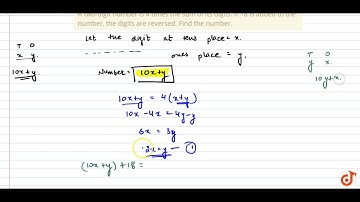 A two-digit number is 4 times the sum of its digits. If 18 is added to the
number, the digits are reversed. Find the number.
Let the digit at tens place = x.
ones place = y.
T O
x y.
10x+y.
Number = 10x+y
T O
y x.
10y+x.
10x+y = 4(x+y)
10x-4x = 4y-y
6x = 3y
2x = y — ①
(10x+y)+18 =